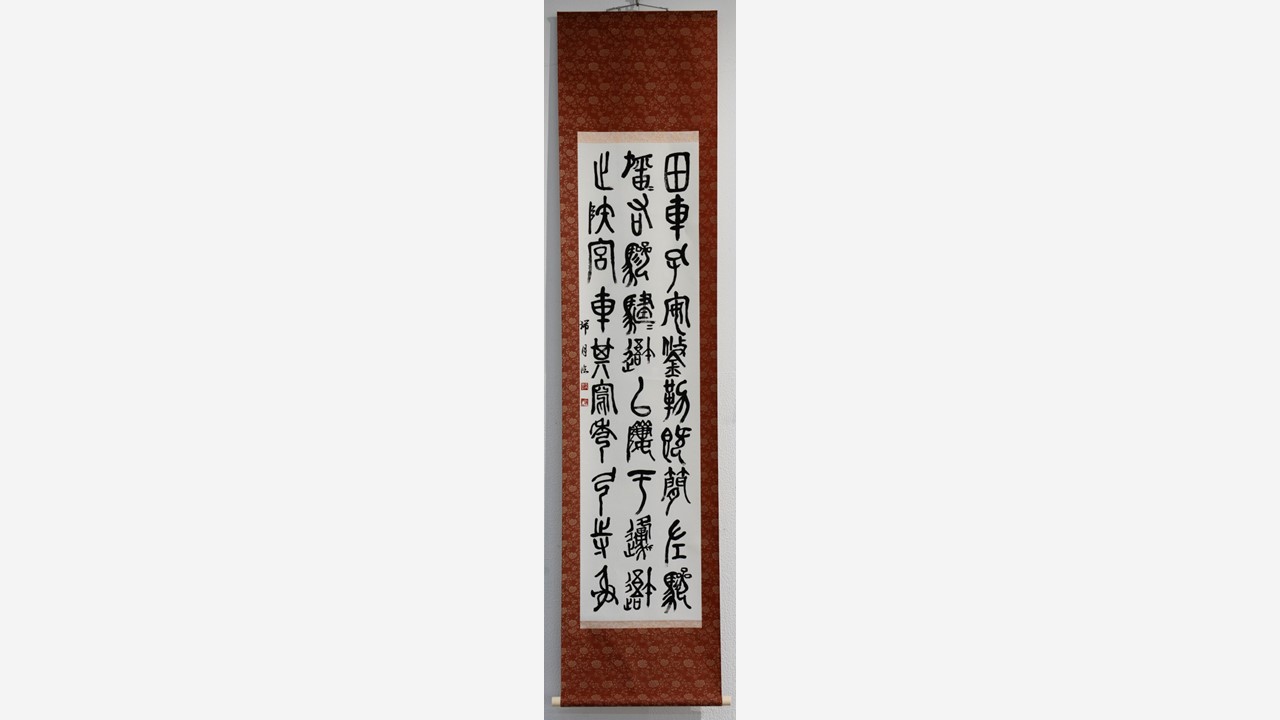 田車孔安鋚勒既簡左驂
旛〻右驂騝〻䢍以隮于邍䢍
止陜宮車其寫秀弓寺射
月臨